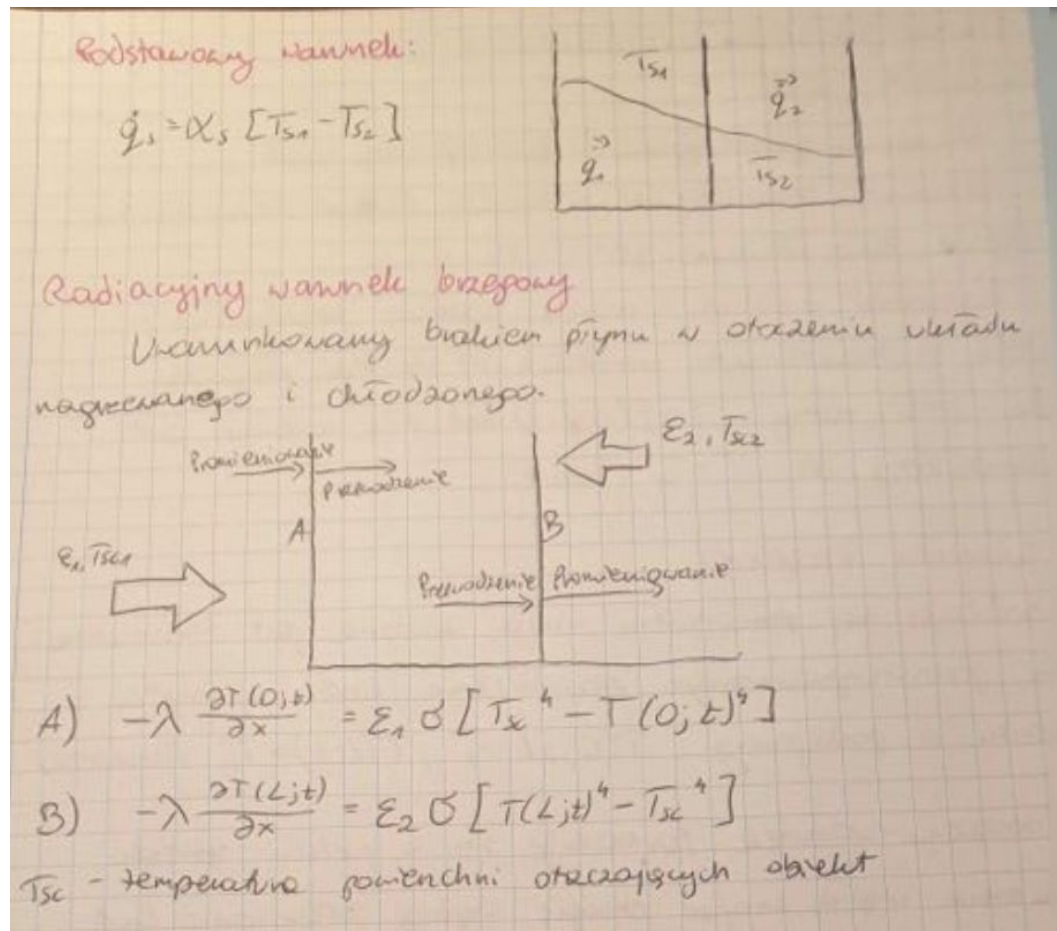 Podstawowy warunek:
q̇ₛ = αₛ [Tₛ₁ - Tₛ₂]
Tₛ₁
q⃗₂
q⃗₁
Tₛ₂
Radiacyjny warunek brzegowy
Uwarunkowany brakiem płynu w otoczeniu układu
nagrzewanego i chłodzonego.
ε₂, Tsc₂
Promieniowanie
Przewodzenie
A
B
ε₁, Tsc₁
Przewodzenie
Promieniowanie
A) -λ ∂T(0;t)/∂x = ε₁ σ [Tsc⁴ - T(0;t)⁴]
B) -λ ∂T(L;t)/∂x = ε₂ σ [T(L;t)⁴ - Tsc⁴]
Tsc - temperatura powierzchni otaczających obiekt